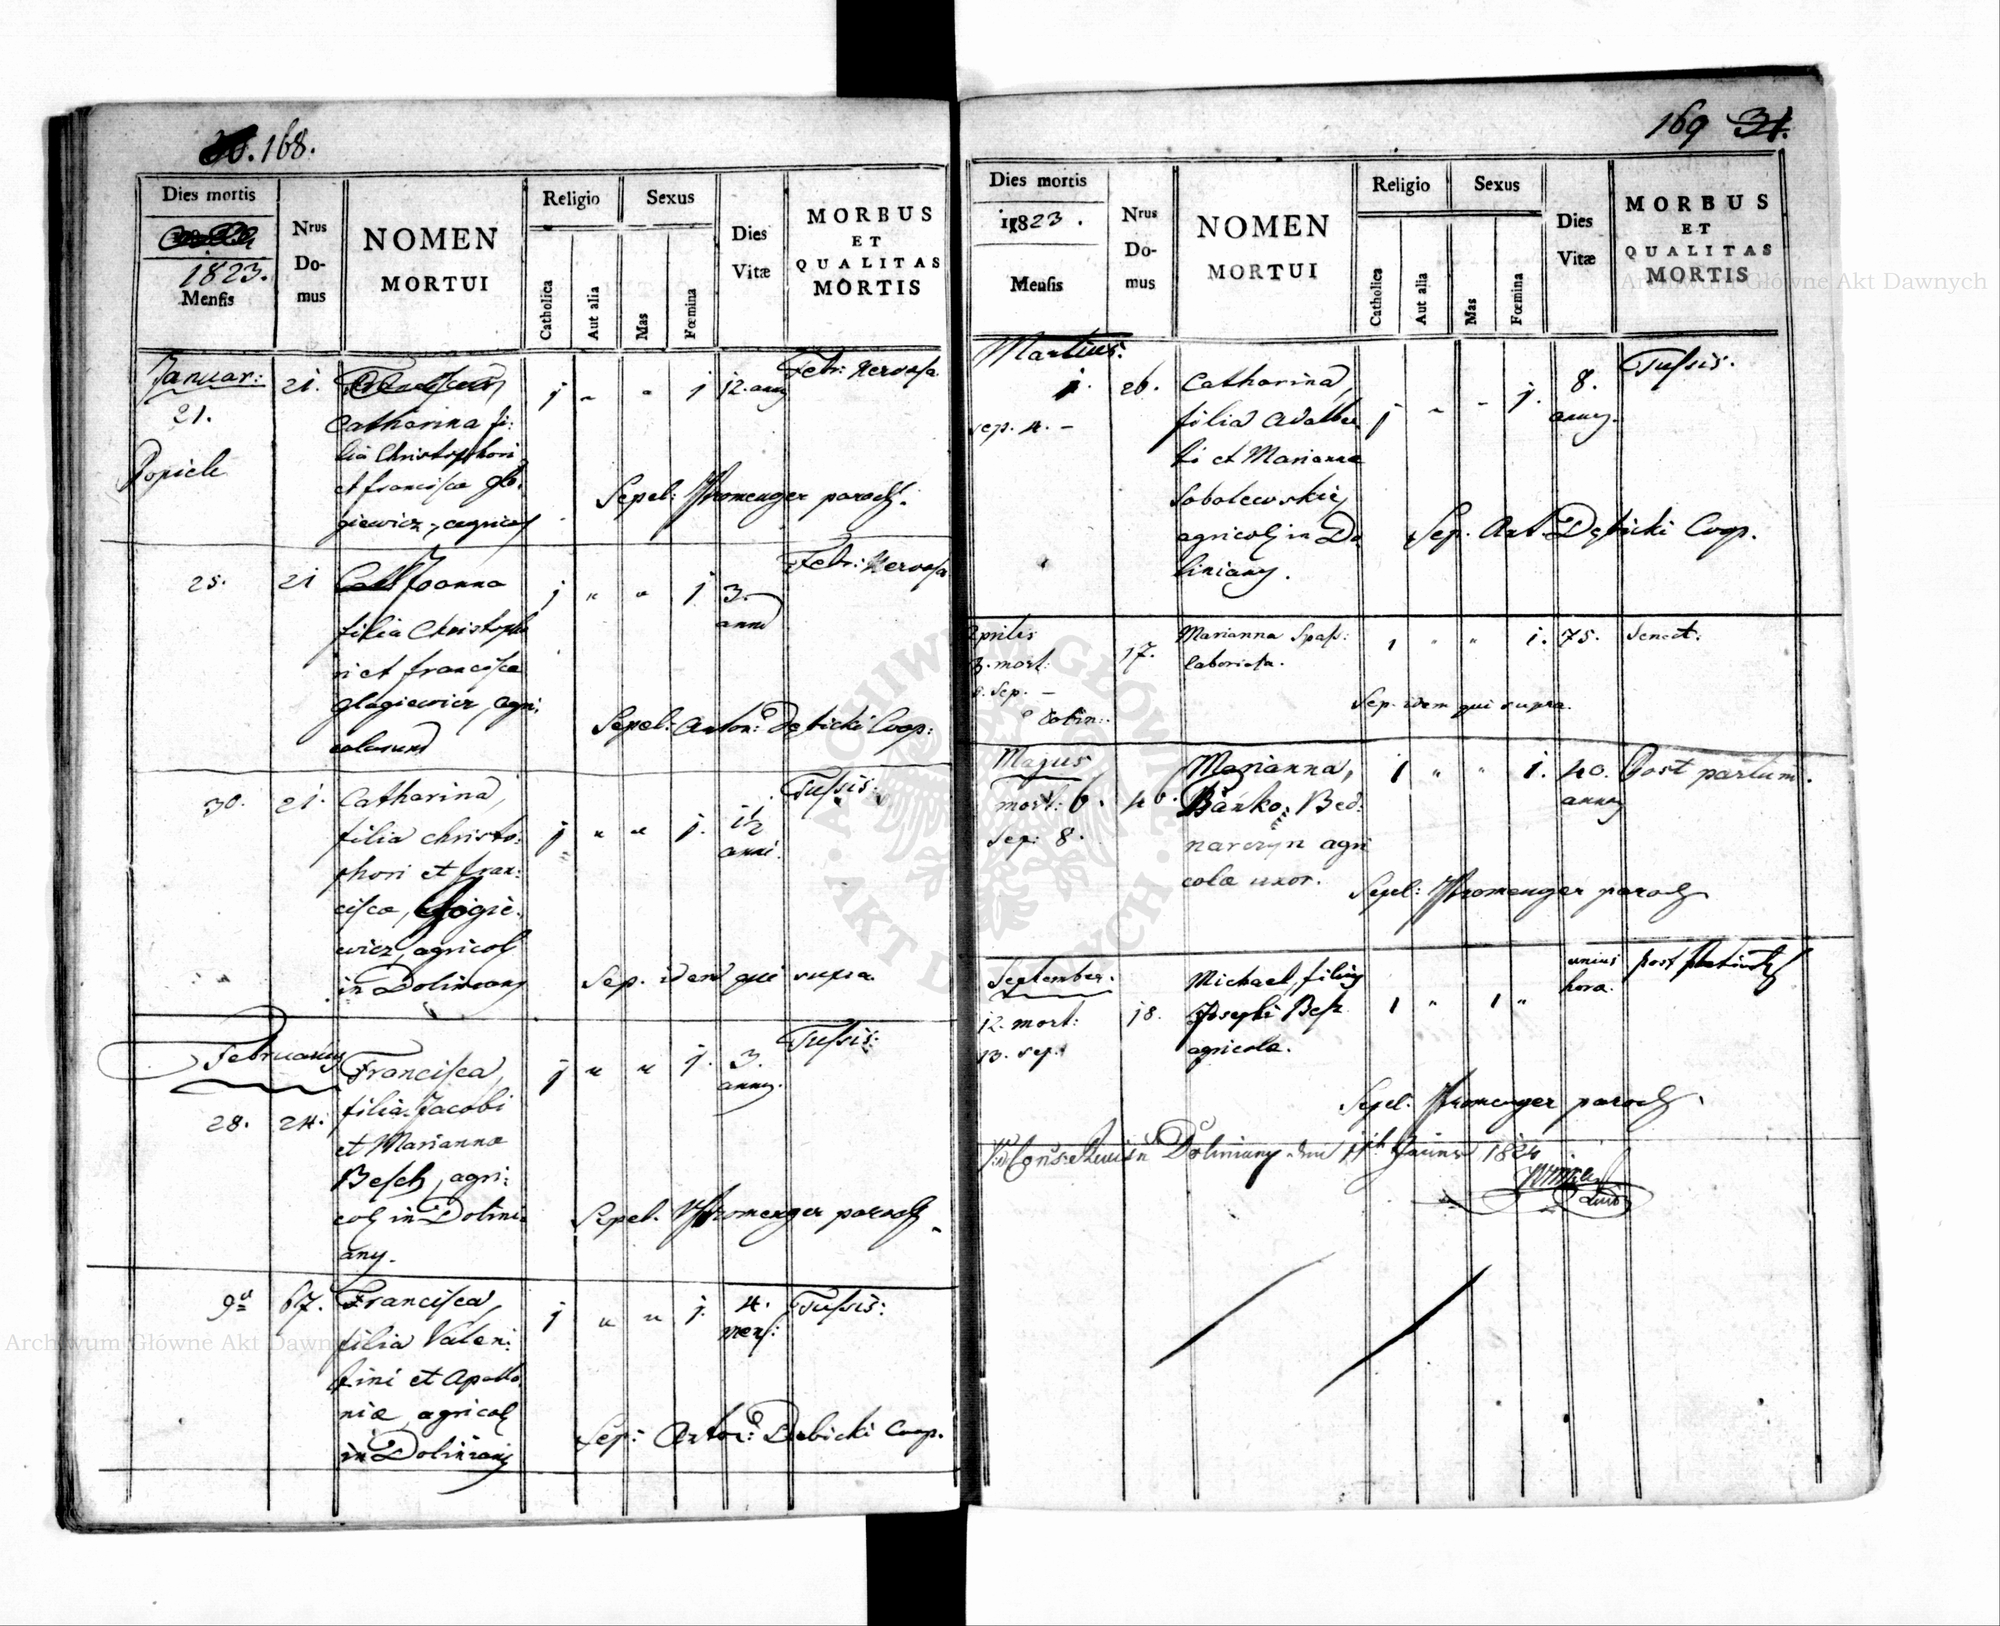 168.
Dies mortis
1823.
Mensis
Nrus
Do-
mus
NOMEN
MORTUI
Religio
Catholica
Aut alia
Sexus
Mas
Fœmina
Dies
Vitæ
MORBUS
ET
QUALITAS
MORTIS
Januar:
21.
21.
Catharina fi:
lia Christophori
et Francisca
1 " " 1
12. anny
Febr: Nervosa
Sepel: paroch.
25.
21
Joanna
filia Christopho
ri et Francisca
Glogiewicz, agri:
colarum
1 " " 1
3.
anno
Febr: Nervosa
Sepel: Anton: Dębicki Coop:
30.
21.
Catharina,
filia Christo:
phori et Fran:
cisca, Glogie:
wicz, agricol
in Doliniany
1 " " 1.
1/2
anni.
Tussis:
Sep. idem qui supra.
Februarius
28.
24.
Francisca,
filia Jacobi
et Marianna
Besch, agri:
col in Dolini:
any.
1 " " 1.
3.
anny.
Tussis:
Sepel. paroch
9a
67.
Francisca,
filia Valen:
tini et Apollo:
niæ, agricol
in Doliniany
1 " " 1.
4.
mens:
Tussis:
Sep: Anton: Dębicki Coop.
169 31.
Dies mortis
1823.
Mensis
Nrus
Do-
mus
NOMEN
MORTUI
Religio
Catholica
Aut alia
Sexus
Mas
Fœmina
Dies
Vitæ
MORBUS
ET
QUALITAS
MORTIS
Martius.
1.
sep. 4. -
26.
Catharina,
filia Adalber
ti et Marianna
Sobolewskie
agricol in Do
liniany.
1 " " 1.
8.
anny.
Tussis.
Sep. Ant. Dębicki Coop.
Aprilis
3. mort:
Sep. -
17.
Marianna
laboriosa.
1 " " 1.
75.
Senect:
Sep. idem qui supra.
Majus
mort: 6.
Sep: 8.
46.
Marianna,
Bańko, Bed:
narczyn agri
colæ uxor.
1 " " 1.
40.
anny
Post partum.
Sepel: paroch
September.
12. mort:
13. sep.
18.
Michael, filius
Josephi Besz
agricola.
1 " 1 "
unius
hora.
post
Sepel. paroch.
Doliniany 1824
Archiwum Główne Akt Dawnych
Archiwum Główne Akt Dawnych
ARCHIWUM GŁÓWNE · AKT DAWNYCH ·